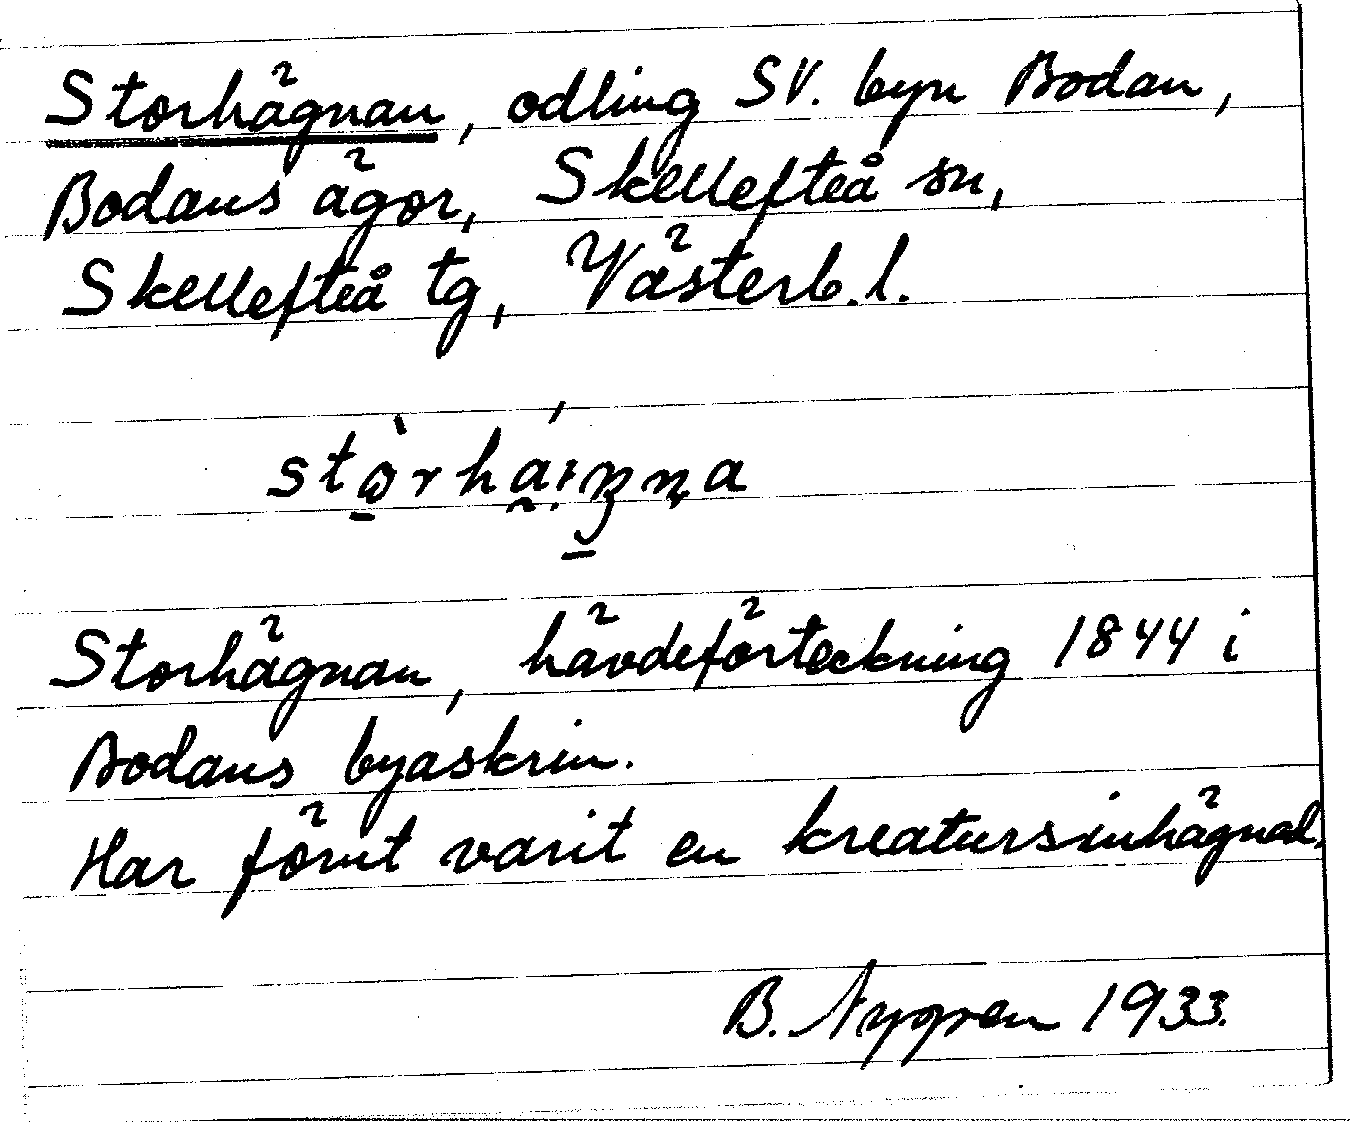 Storhägnan, odling SV. byn Bodan,
Bodans ägor, Skellefteå sn,
Skellefteå tg, Västerb. l.
Storhägnan, hävdeförteckning 1844 i
Bodans byaskrin.
Har förut varit en kreatursinhägnad.
B. Nygren 1933.